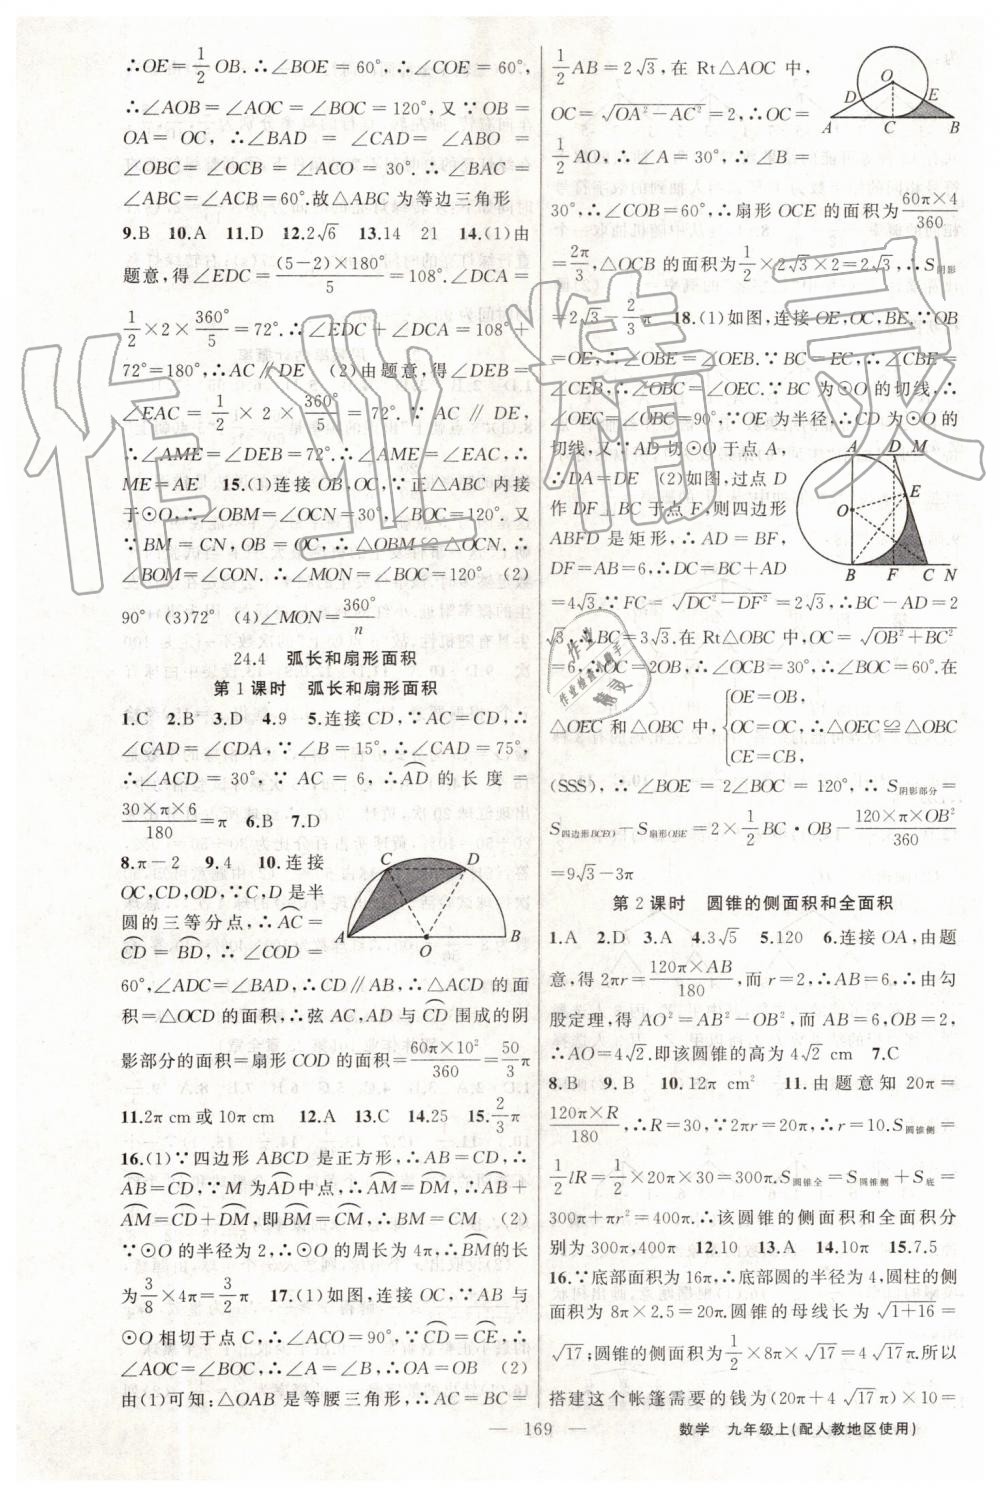 ∴OE=1/2 OB.∴∠BOE=60°,∴∠COE=60°,
∴∠AOB=∠AOC=∠BOC=120°,又∵OB=
OA=OC,∴∠BAD=∠CAD=∠ABO=
∠OBC=∠OCB=∠ACO=30°.∴∠BAC=
∠ABC=∠ACB=60°.故△ABC为等边三角形
9.B 10.A 11.D 12.2√6 13.14 21 14.(1)由
题意,得∠EDC=(5-2)×180°/5=108°.∠DCA=
1/2×2×360°/5=72°.∴∠EDC+∠DCA=108°+
72°=180°,∴AC∥DE (2)由题意,得∠DEB=
∠EAC=1/2×2×360°/5=72°.∵AC∥DE,
∴∠AME=∠DEB=72°.∴∠AME=∠EAC,∴
ME=AE 15.(1)连接OB,OC,∵正△ABC内接
于⊙O,∴∠OBM=∠OCN=30°,∠BOC=120°.又
∵BM=CN,OB=OC,∴△OBM≌△OCN.∴
∠BOM=∠CON.∴∠MON=∠BOC=120° (2)
90° (3)72° (4)∠MON=360°/n
24.4 弧长和扇形面积
第1课时 弧长和扇形面积
1.C 2.B 3.D 4.9 5.连接CD,∵AC=CD,∴
∠CAD=∠CDA,∵∠B=15°,∴∠CAD=75°,
∴∠ACD=30°,∵AC=6,∴⌒AD的长度=
30×π×6/180=π 6.B 7.D
8.π-2 9.4 10.连接
OC,OD,CD,∵D是半
圆的三等分点,∴⌒AC=
⌒CD=⌒BD,∴∠COD=
60°,∠ADC=∠BAD,∴CD∥AB,∴△ACD的面
积=△OCD的面积,∴弦AC,AD与⌒CD围成的阴
影部分的面积=扇形COD的面积=60π×10²/360=50/3 π
11.2π cm或10π cm 12.A 13.C 14.25 15.2/3 π
16.(1)∵四边形ABCD是正方形,∴AB=CD,∴
⌒AB=⌒CD,∵M为⌒AD中点,∴⌒AM=⌒DM,∴⌒AB+
⌒AM=⌒CD+⌒DM,即⌒BM=⌒CM,∴BM=CM (2)
∵⊙O的半径为2,∴⊙O的周长为4π,∴⌒BM的长
为3/8×4π=3/2 π 17.(1)如图,连接OC,∵AB与
⊙O相切于点C,∴∠ACO=90°,∵⌒CD=⌒CE,∴
∠AOC=∠BOC,∴∠A=∠B,∴OA=OB (2)
由(1)可知,△OAB是等腰三角形,∴AC=BC=
C D
A O B
1/2 AB=2√3,在Rt△AOC中,
OC=√(OA²-AC²)=2,∴OC=
1/2 AO,∴∠A=30°,∴∠B=
30°,∴∠COB=60°,∴扇形OCE的面积为60π×4/360
=2π/3,△OCB的面积为1/2×2√3×2=2√3,∴S阴影
=2√3-2/3 π 18.(1)如图,连接OE,OC,BE.∵OB
=OE,∴∠OBE=∠OEB.∵BC=EC,∴∠CBE=
∠CEB,∴∠OBC=∠OEC.∵BC为⊙O的切线,∴
∠OEC=∠OBC=90°,∵OE为半径,∴CD为⊙O的
切线,又∵AD切⊙O于点A,
∴DA=DE (2)如图,过点D
作DF⊥BC于点F,则四边形
ABFD是矩形,∴AD=BF,
DF=AB=6,∴DC=BC+AD
=4√3.∵FC=√(DC²-DF²)=2√3,∴BC-AD=2
√3,∴BC=3√3.在Rt△OBC中,∴OC=√(OB²+BC²)
=6,∴OC=2OB,∴∠OCB=30°,∴∠BOC=60°.在
△OEC和△OBC中,{OE=OB, OC=OC, CE=CB}∴△OEC≌△OBC
(SSS),∴∠BOE=2∠BOC=120°,∴S阴影部分=
S四边形BCEO-S扇形OBE=2×1/2 BC·OB-120×π×OB²/360
=9√3-3π
O
D E
A C B
A D M
E
O
B F C N
第2课时 圆锥的侧面积和全面积
1.A 2.D 3.A 4.3√5 5.120 6.连接OA,由题
意,得2πr=120π×AB/180,而r=2,∴AB=6,∴由勾
股定理,得AO²=AB²-OB²,而AB=6,OB=2,
∴AO=4√2.即该圆锥的高为4√2 cm 7.C
8.B 9.B 10.12π cm² 11.由题意知20π=
120π×R/180,∴R=30,∵2πr=20π,∴r=10.S圆锥侧=
1/2 lR=1/2×20π×30=300π.S圆锥全=S圆锥侧+S底=
300π+πr²=400π.∴该圆锥的侧面积和全面积分
别为300π,400π 12.10 13.A 14.10π 15.7.5
16.∵底部面积为16π,∴底部圆的半径为4,圆柱的侧
面积为8π×2.5=20π.圆锥的母线长为√(1+16)=
√17;圆锥的侧面积为1/2×8π×√17=4√17π.所以
搭建这个帐篷需要的钱为(20π+4√17π)×10=
— 169 —
数学 九年级上(配人教地区使用)
作业精灵